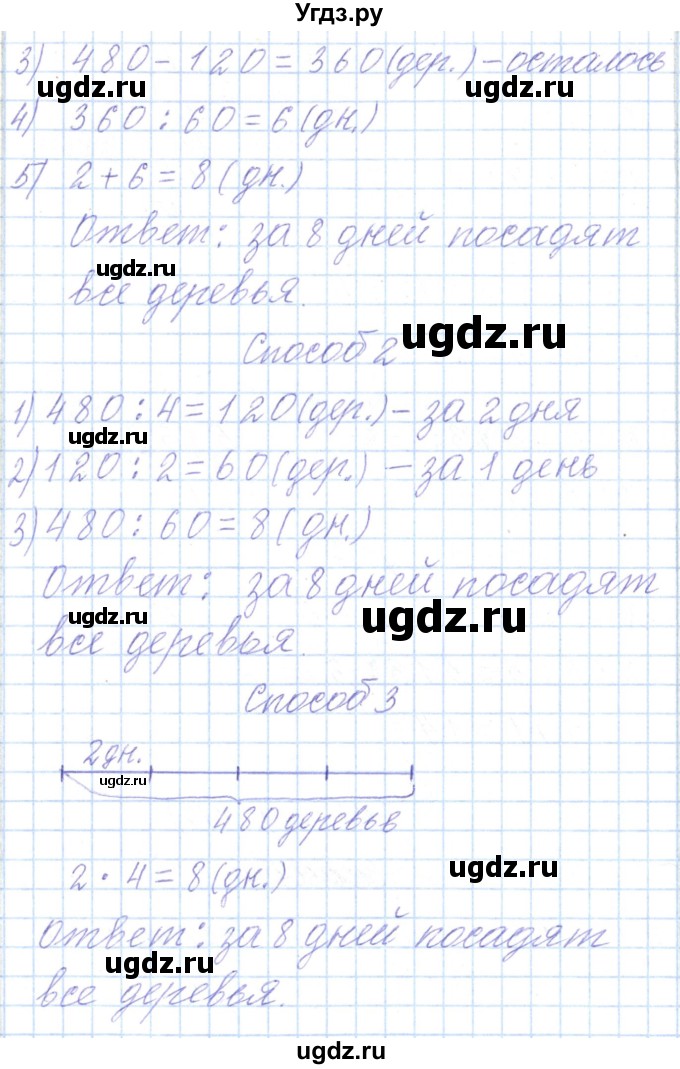 Угдз.ру
3) 480 - 120 = 360 (дер.) - осталось
ugdz.ru
ugdz.ru
4) 360 : 60 = 6 (дн.)
5) 2 + 6 = 8 (дн.)
Ответ: за 8 дней посадят
ugdz.ru
все деревья.
ugdz.ru
Способ 2
1) 480 : 4 = 120 (дер.) - за 2 дня
ugdz.ru
2) 120 : 2 = 60 (дер.) - за 1 день
3) 480 : 60 = 8 (дн.)
Ответ: за 8 дней посадят
ugdz.ru
ugdz.ru
все деревья.
Способ 3
2 дн.
ugdz.ru
480 деревьев
2 · 4 = 8 (дн.)
ugdz.ru
Ответ: за 8 дней посадят
ugdz.ru
все деревья.
ugdz.ru